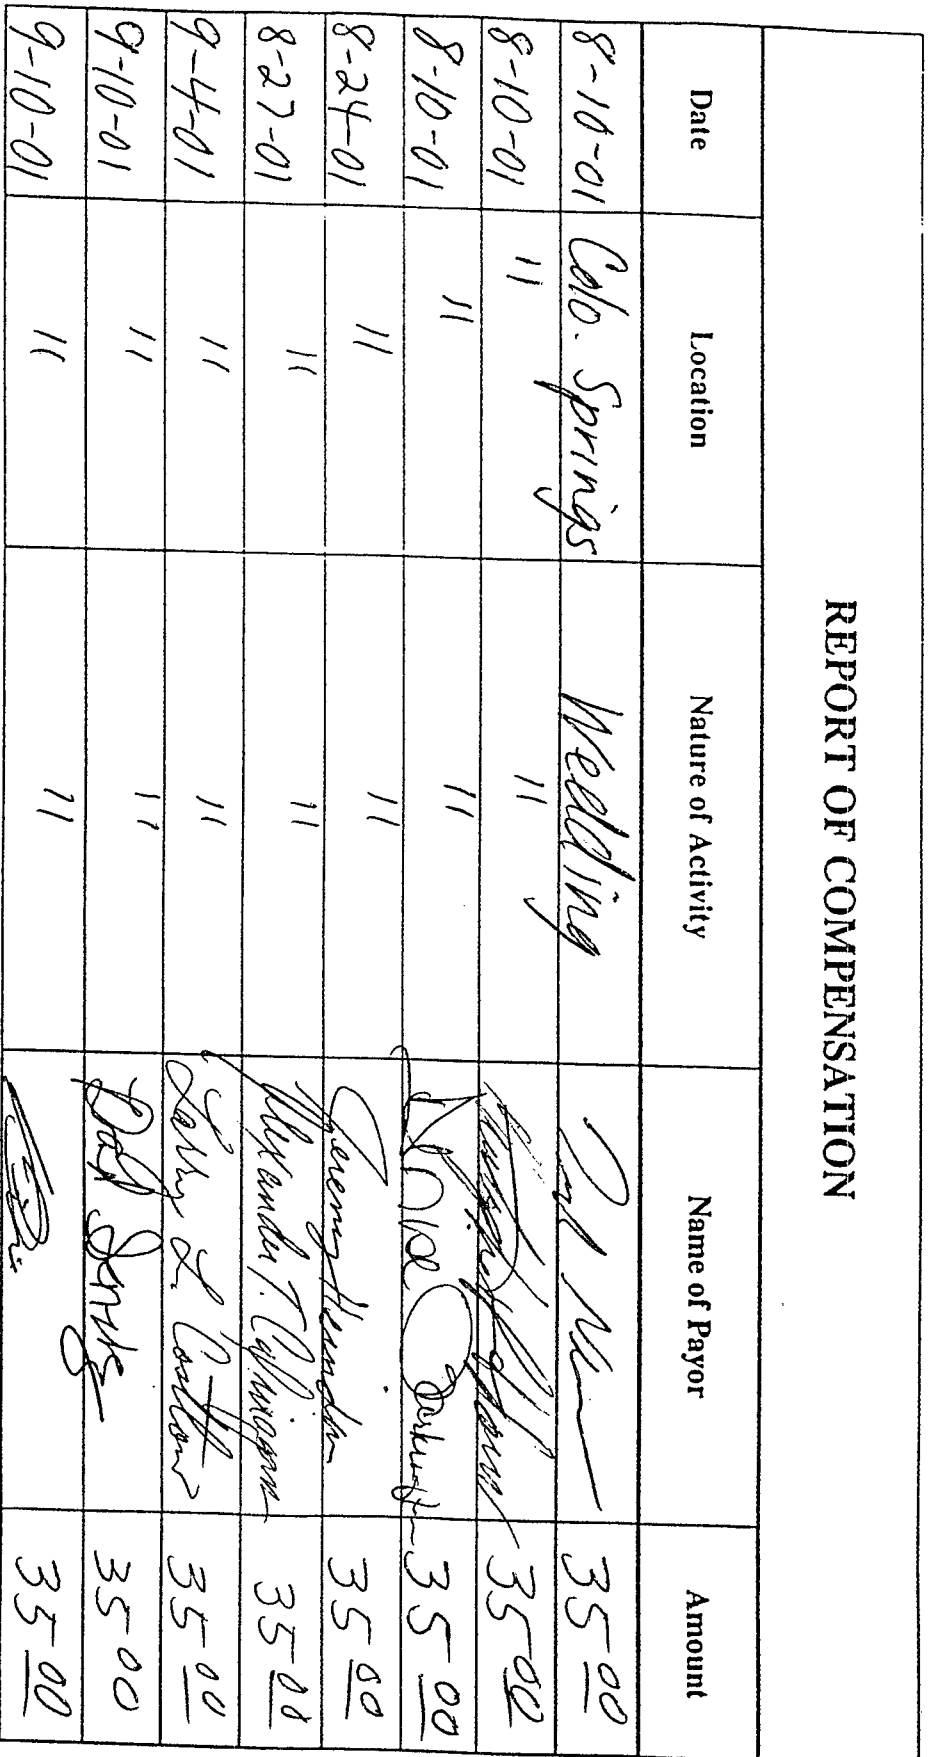 REPORT OF COMPENSATION
Date Location Nature of Activity Name of Payor Amount
8-10-01 Colo. Springs Wedding 35-00
8-10-01 " " 35-00
8-10-01 " " 35-00
8-24-01 " " Jeremy Herndon 35-00
8-27-01 " " Alexander T. 35-00
9-4-01 " " Larry L 35-00
9-10-01 " " 35-00
9-10-01 " " 35-00